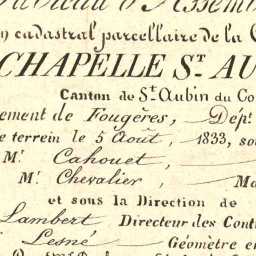 Tableau d'Assemb
n cadastral parcellaire de la C
CHAPELLE ST. AU
Canton de St. Aubin du Co
ement de Fougères, Dépt.
e terrein le 5 Août, 1833, so
Mr. Cahouet,
Mr. Chevalier, Ma
et sous la Direction de
Lambert Directeur des Cont
Lesné Géometre en